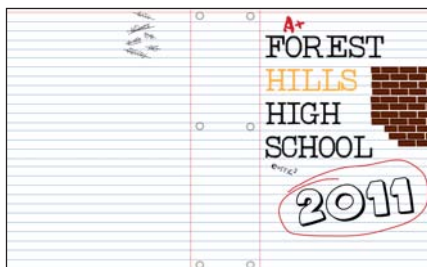 A+
FOREST
HILLS
HIGH
SCHOOL
2011